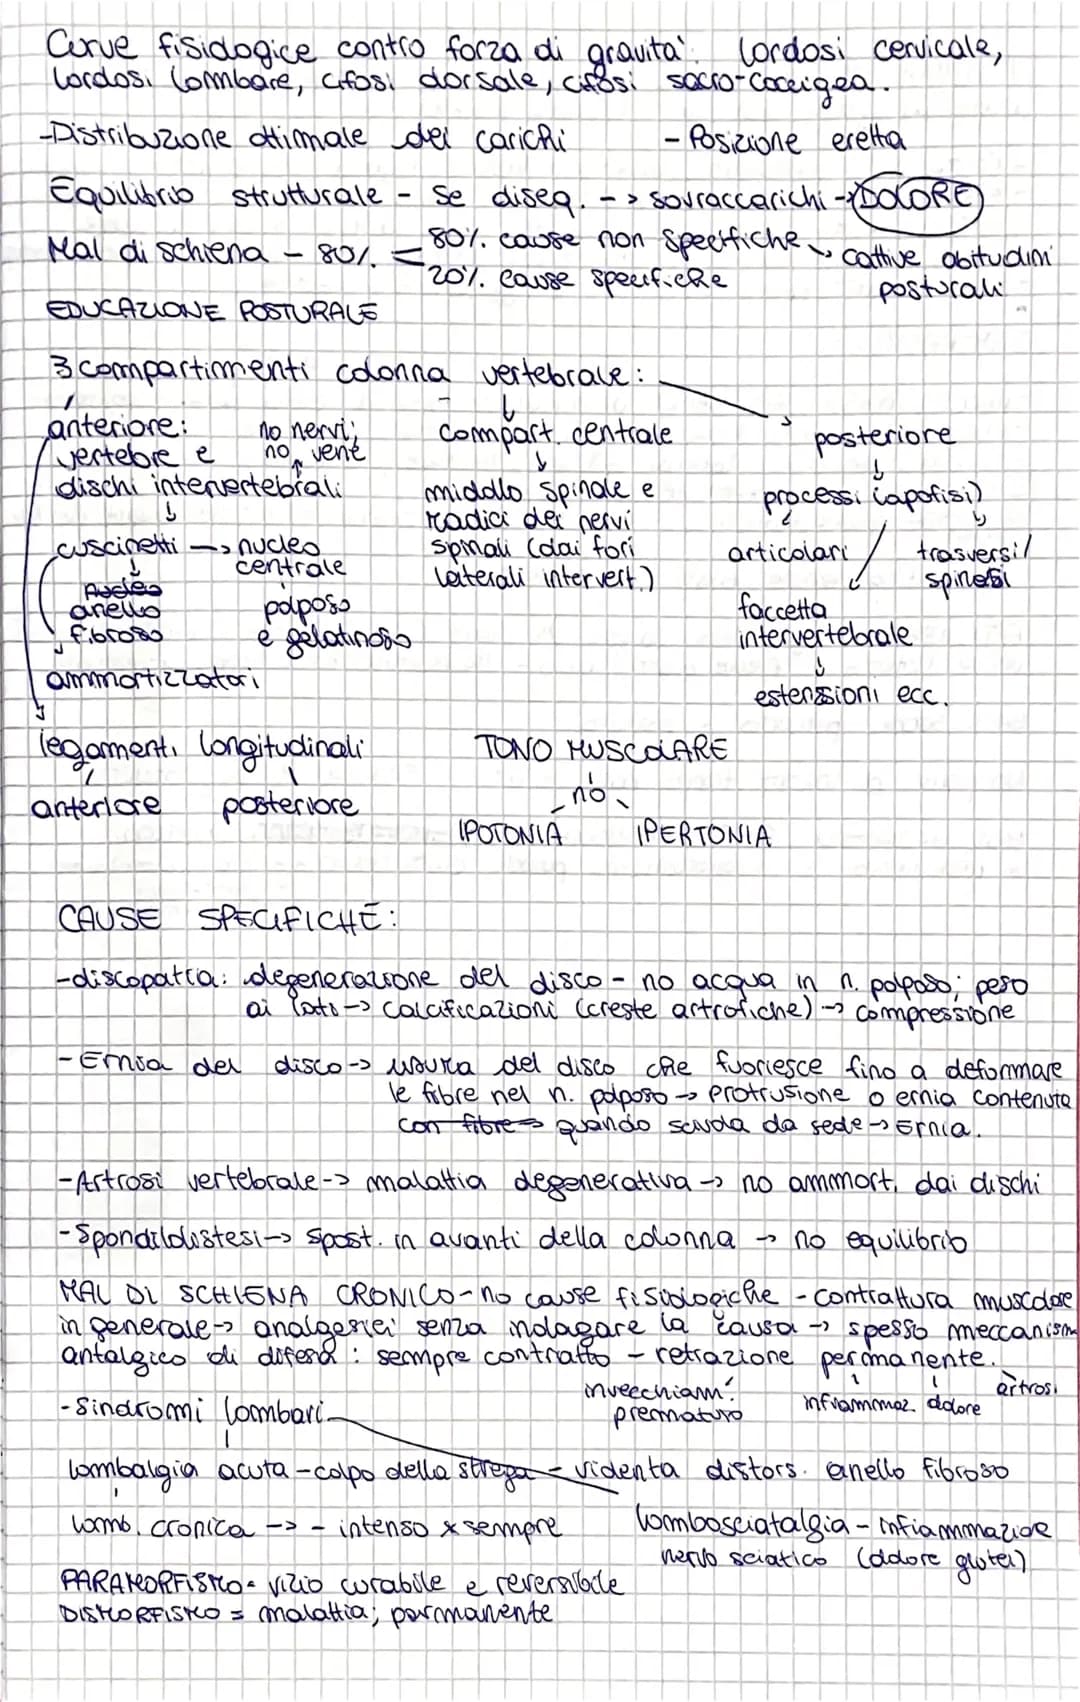 Curve fisiologice contro forza di gravità: lordosi cervicale,
lordosi lombare, cifosi dorsale, cifosi sacro-coccigea.
-Distribuzione ottimale dei carichi - Posizione eretta
Equilibrio strutturale - Se diseq. -> sovraccarichi -> DOLORE
Mal di schiena - 80% = 80% cause non specifiche -> cattive abitudini posturali
20% cause specifiche
EDUCAZIONE POSTURALE
3 compartimenti colonna vertebrale:
anteriore:
vertebre e
dischi intervertebrali
no nervi;
no vene
cuscinetti -> nucleo
centrale
polposo
e gelatinoso
anello
fibroso
ammortizzatori
legamenti longitudinali
anteriore posteriore
compart. centrale
midollo spinale e
radici dei nervi
spinali (dai fori
laterali intervert.)
posteriore
processi (apofisi)
articolari
trasversi/
spinosi
faccetta
intervertebrale
estensioni ecc.
TONO MUSCOLARE
no
IPOTONIA IPERTONIA
CAUSE SPECIFICHE:
-discopatia: degenerazione del disco - no acqua in n. polposo; peso
ai lati -> calcificazioni (creste artrofiche) -> compressione
-Ernia del disco -> usura del disco che fuoriesce fino a deformare
le fibre nel n. polposo -> protrusione o ernia contenuta
con fibre -> quando scivola da sede -> Ernia.
-Artrosi vertebrale -> malattia degenerativa -> no ammort. dai dischi
-Spondilolistesi -> spost. in avanti della colonna -> no equilibrio
MAL DI SCHIENA CRONICO - no cause fisiologiche - contrattura muscolare
in generale -> analgesici senza indagare la causa -> spesso meccanism
antalgico di difesa : sempre contratto - retrazione permanente.
invecchiam.
prematuro
infiammaz. dolore artrosi
-Sindromi lombari
lombalgia acuta - colpo della strega - violenta distors. anello fibroso
lomb. cronica -> - intenso x sempre
lombosciatalgia - infiammazione
nervo sciatico (dolore glutei)
PARAMORFISMO = vizio curabile e reversibile
DISMORFISMO = malattia; permanente